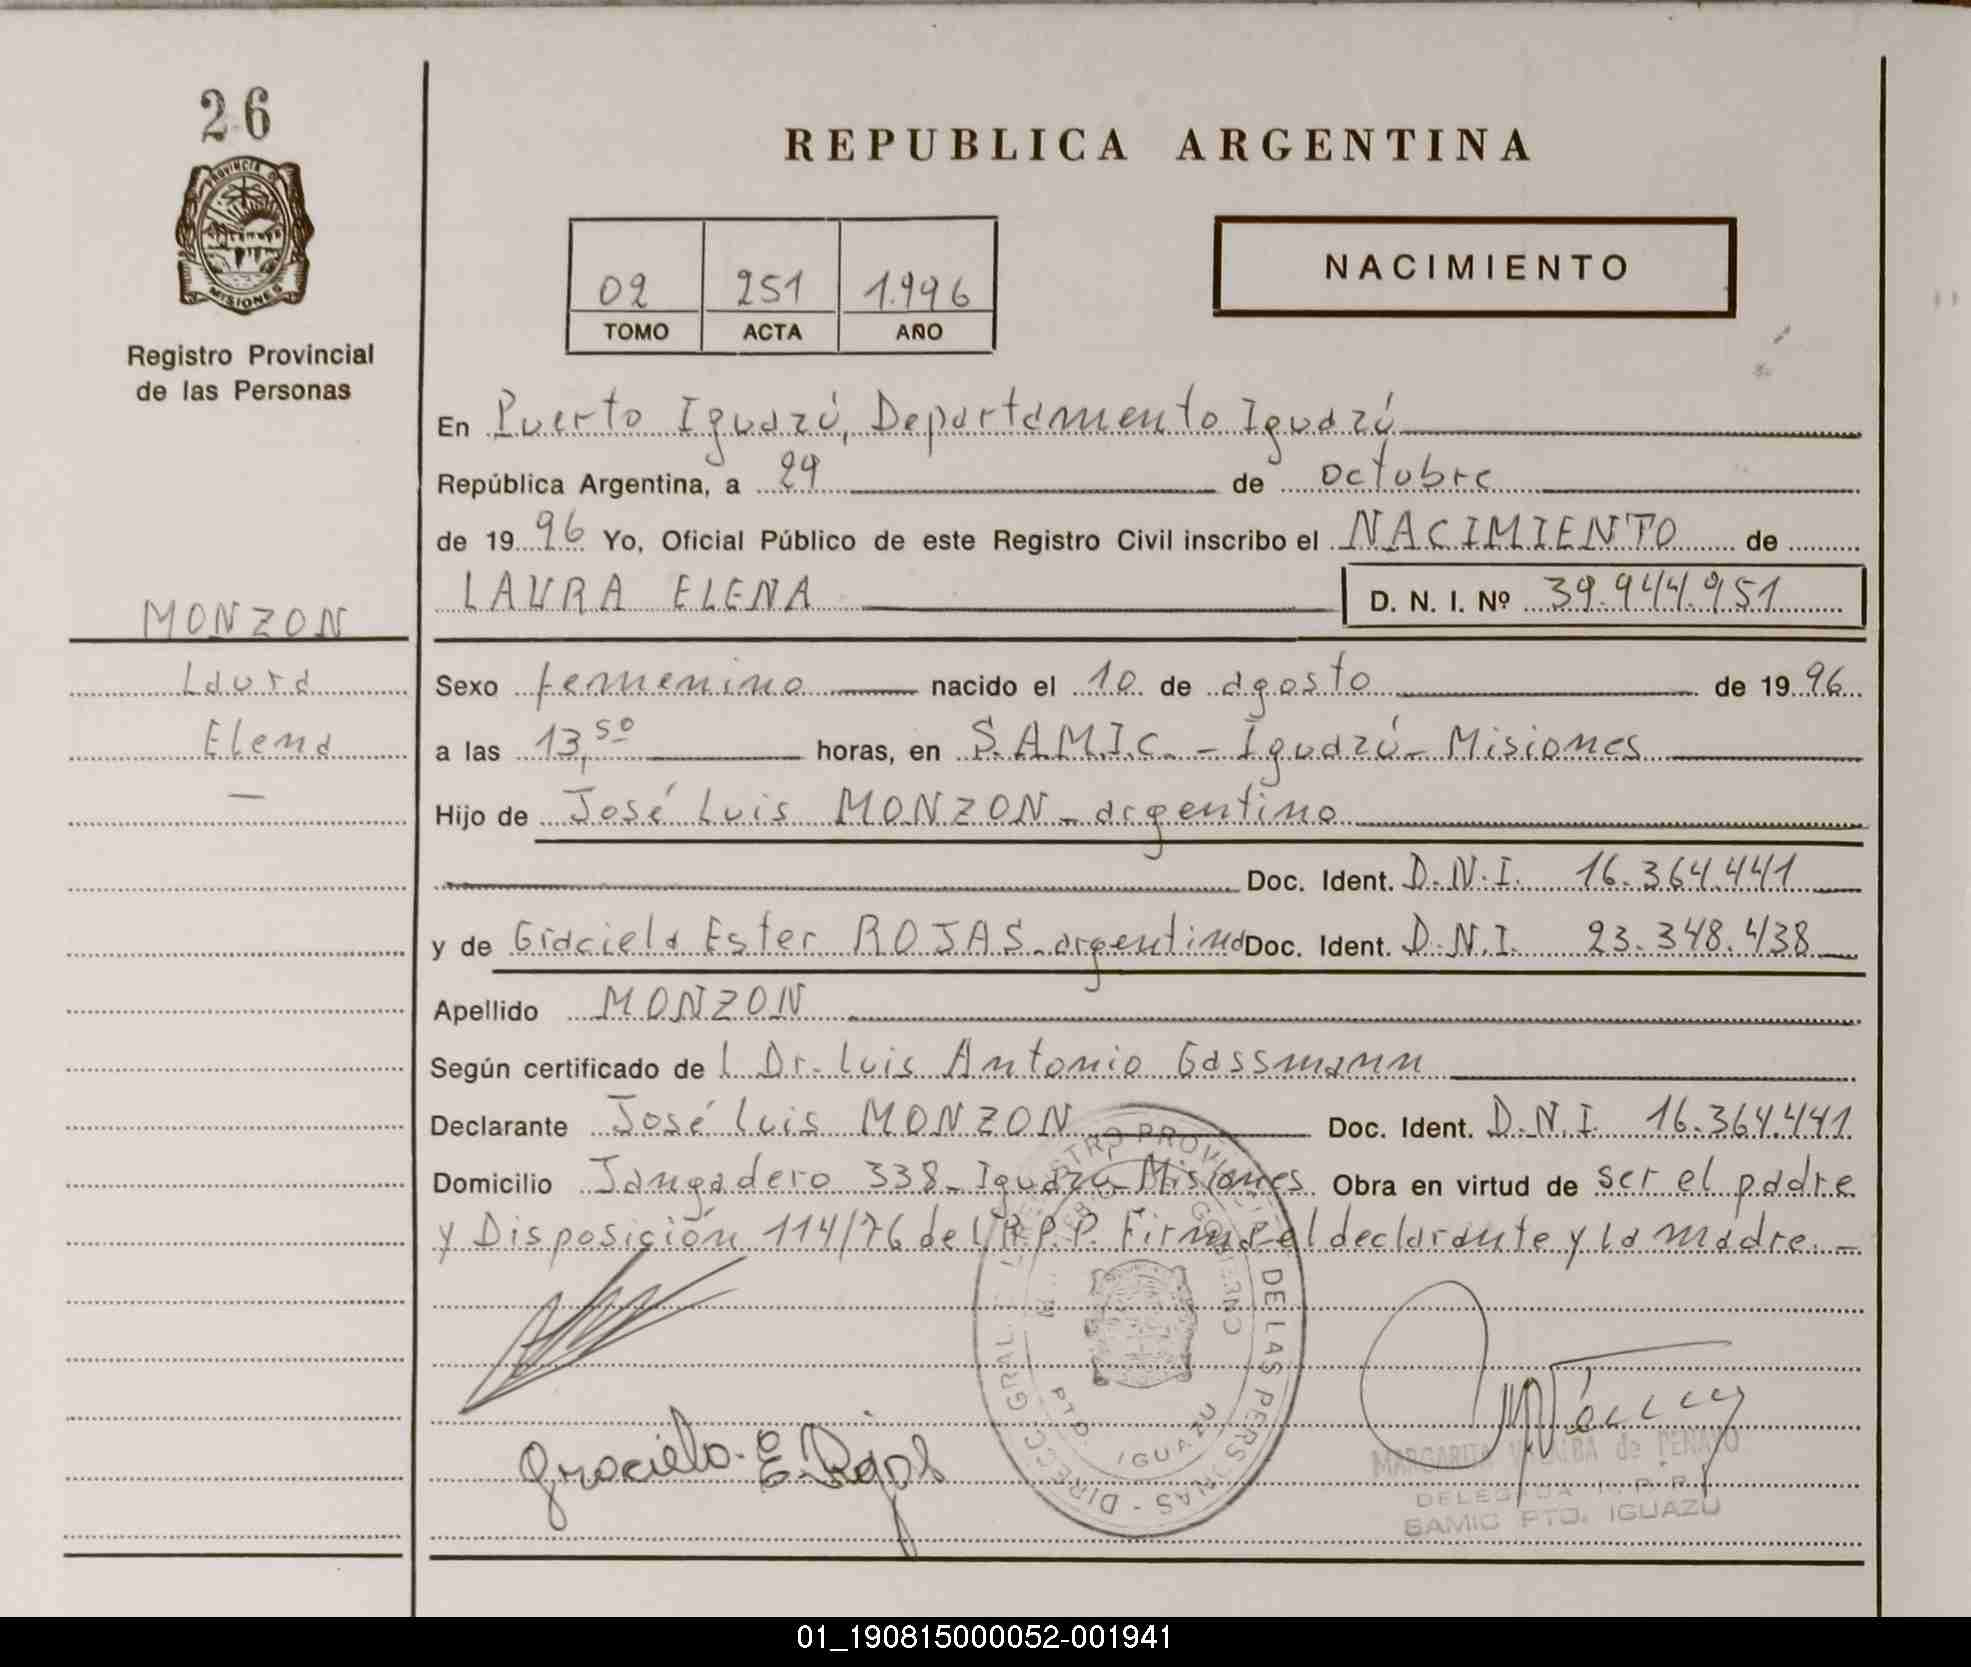 26
PROVINCIA DE
MISIONES
Registro Provincial
de las Personas
MONZON
Laura
Elena
—
REPUBLICA ARGENTINA
02 251 1.996
TOMO ACTA AÑO
NACIMIENTO
En Puerto Iguazú, Departamento Iguazú
República Argentina, a 29 de octubre
de 1996 Yo, Oficial Público de este Registro Civil inscribo el NACIMIENTO de
LAURA ELENA D. N. I. Nº 39.944.951
Sexo femenino nacido el 10 de agosto de 1996
a las 13,50 horas, en S.A.M.I.C. - Iguazú - Misiones
Hijo de José Luis MONZON - argentino
Doc. Ident. D.N.I. 16.364.441
y de Graciela Ester ROJAS - argentina Doc. Ident. D.N.I. 23.348.438
Apellido MONZON
Según certificado de l Dr. Luis Antonio Gassmann
Declarante José Luis MONZON Doc. Ident. D.N.I. 16.364.441
Domicilio Jangadero 338 - Iguazú - Misiones Obra en virtud de ser el padre
y Disposición 114/76 del R.P.P. Firma el declarante y la madre. -
Graciela E. Rojas
DIREC. GRAL. REGISTRO PROVINCIAL DE LAS PERSONAS
GOBIERNO
PTO. IGUAZU
MARGARITA VILLALBA de PENAYO
DELEGADA R.P.P.
SAMIC PTO. IGUAZU
01_190815000052-001941